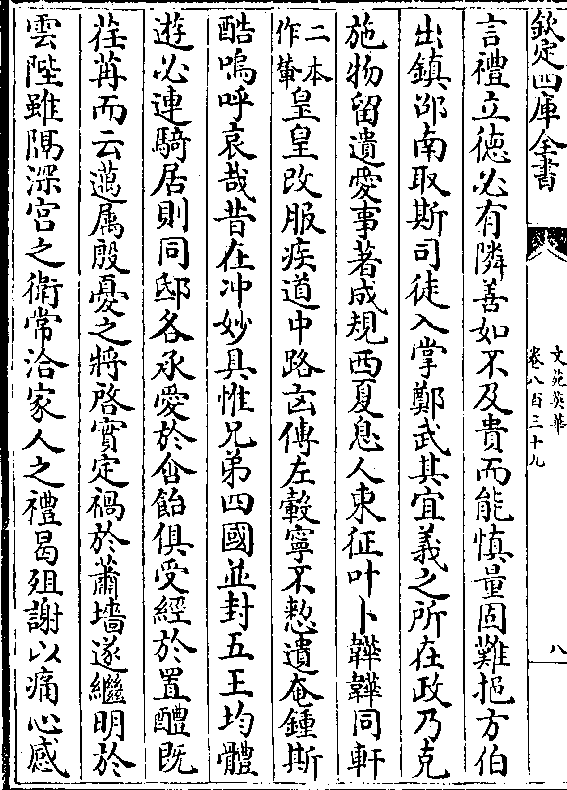 欽定四庫全書
文苑英華
卷八百三十九
八
言禮立德必有隣善如不及貴而能慎量固難挹方伯
出鎮邵南取斯司徒入掌鄭武其宜義之所在政乃克
施物留遺愛事著成規西夏息人東征叶卜韡韡同軒
二本作輂皇皇改服疾道中路訃傳左轂寧不憗遺奄鍾斯
酷嗚呼哀哉昔在沖妙具惟兄弟四國並封五王均體
遊必連騎居則同邸各承愛於含飴俱受經於置醴既
荏苒而云邁屬殷憂之將啓實定禍於蕭墻遂繼明於
雲陛雖隔深宮之衛常洽家人之禮曷殂謝以痛心感